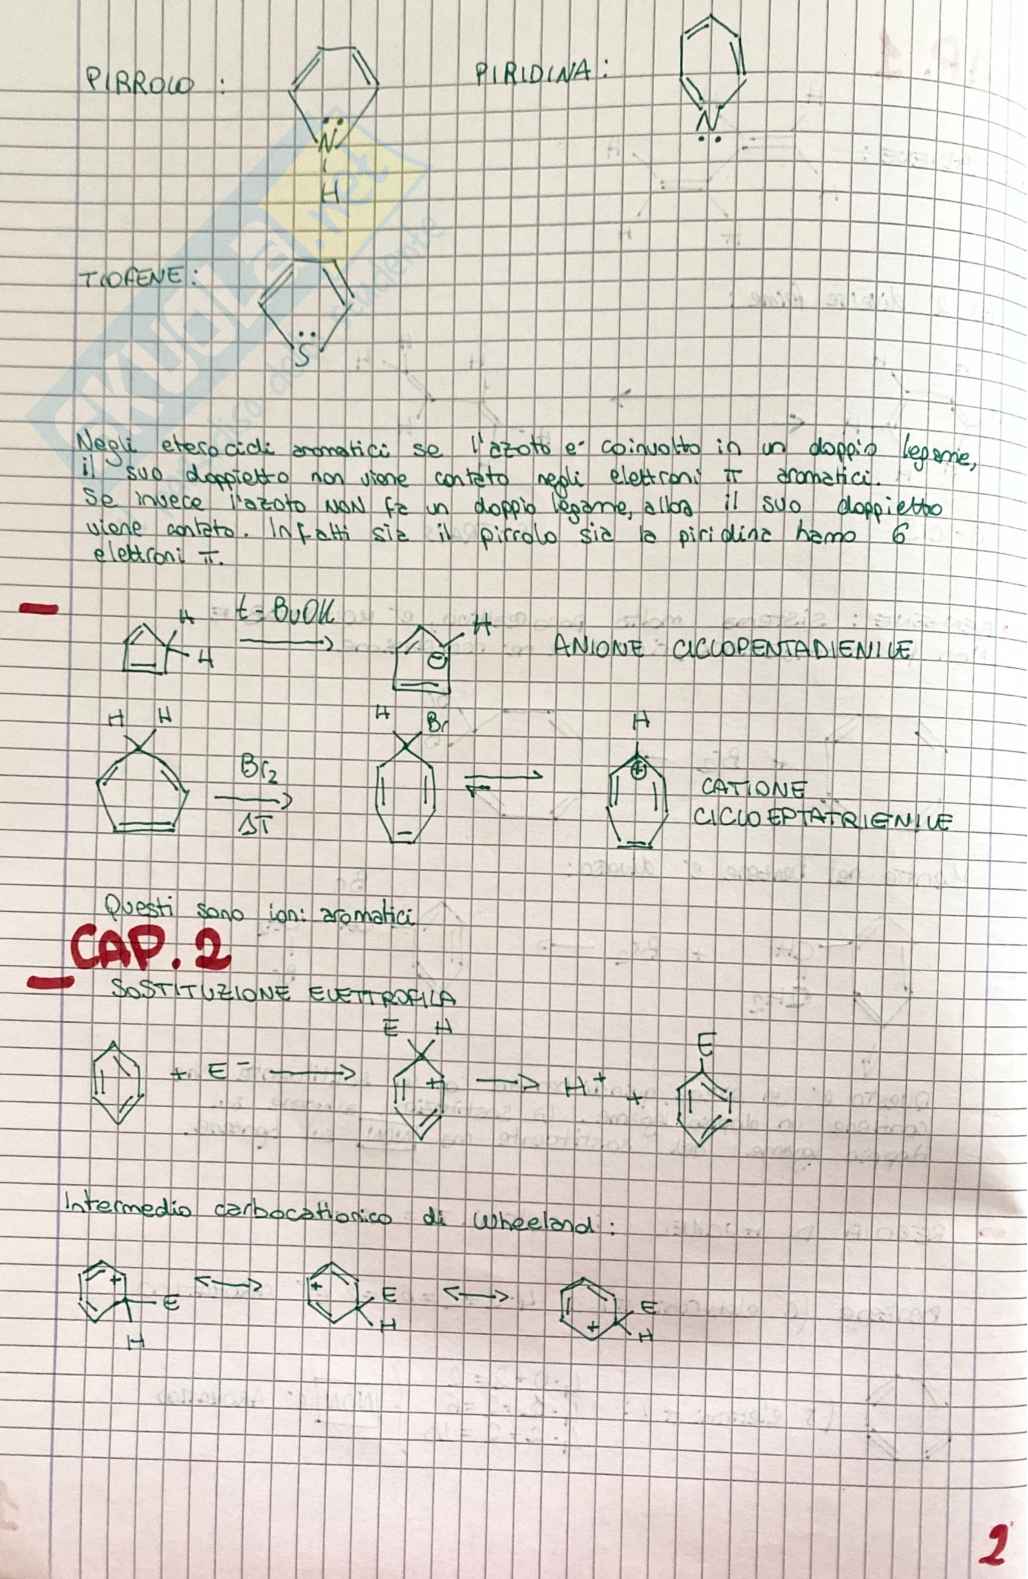 PIRROLO :
PIRIDINA :
N
H
N
TIOFENE :
S
Negli eterocicli aromatici se l'azoto e' coinvolto in un doppio legame,
il suo doppietto non viene contato negli elettroni π aromatici.
Se invece l'azoto NON fa un doppio legame, allora il suo doppietto
viene contato. Infatti sia il pirrolo sia la piridina hanno 6
elettroni π.
H
H
t=BuOK
H
⊖
ANIONE CICLOPENTADIENILE
H H
Br2
ΔT
H Br
H
⊕
CATIONE
CICLOEPTATRIENILE
Questi sono ioni aromatici
CAP. 2
SOSTITUZIONE ELETTROFILA
+ E⁻
E H
+
H⁺ +
E
Intermedio carbocationico di Wheeland :
+
E
H
+
E
H
+
E
H
2